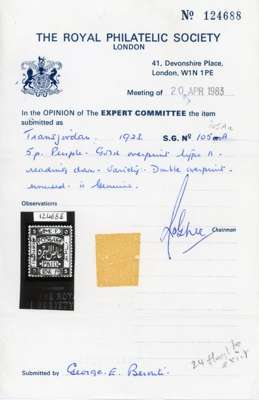 Nº 124688
THE ROYAL PHILATELIC SOCIETY
LONDON
41, Devonshire Place,
London, W1N 1PE
Meeting of 20 APR 1983
In the OPINION of The EXPERT COMMITTEE the item
submitted as
Transjordan. 1923 S.G. No 105
5p. Purple. Gold overprint type
reading down. Variety. Double overprint
is Genuine.
Observations
124688
Chairman
PAID
THE ROYAL
SOCIETY
Submitted by George. E.
24